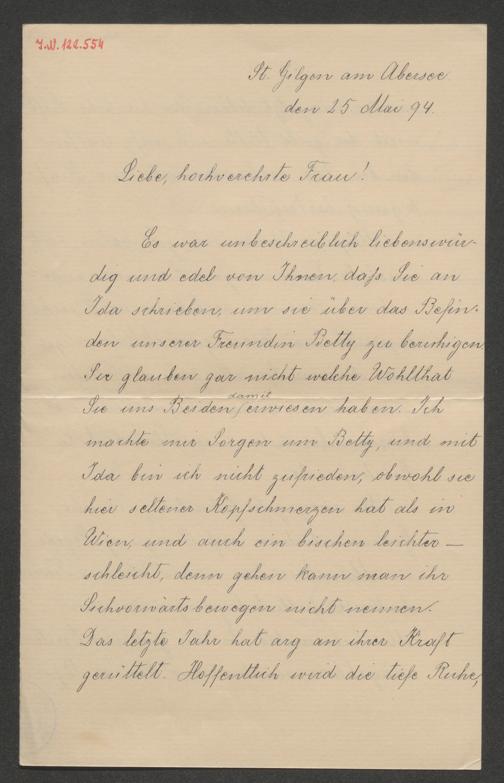 J.N. 122.554
St. Gilgen am Abersee
den 25. Mai 94.
Liebe, hochverehrte Frau!
Es war unbeschreiblich liebenswür-
dig und edel von Ihnen, daß Sie an
Ida schrieben, um sie über das Befin-
den unserer Freundin Betty zu beruhigen.
Sie glauben gar nicht welche Wohlthat
damit
Sie uns Beiden erwiesen haben. Ich
machte mir Sorgen um Betty, und mit
Ida bin ich nicht zufrieden, obwohl sie
hier seltener Kopfschmerzen hat als in
Wien, und auch ein bischen leichter –
schleicht, denn gehen kann man ihr
Sichvorwärtsbewegen nicht nennen.
Das letzte Jahr hat arg an ihrer Kraft
gerüttelt. Hoffentlich wird die tiefe Ruhe,